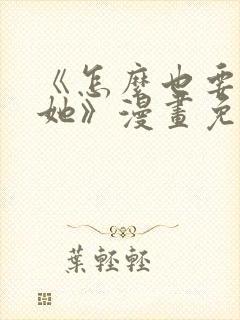 《怎麼也要
她》漫畫免
葉輕輕